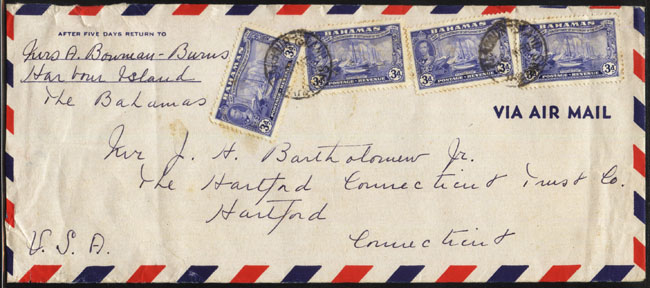 AFTER FIVE DAYS RETURN TO
Mrs A. Bowman-Burns
Harbour Island
The Bahamas
BAHAMAS
3d
POSTAGE · REVENUE
BAHAMAS
3d
POSTAGE · REVENUE
BAHAMAS
3d
POSTAGE · REVENUE
BAHAMAS
3d
POSTAGE · REVENUE
VIA AIR MAIL
Mr J. H. Bartholomew Jr.
The Hartford Connecticut Trust Co.
Hartford
U.S.A. Connecticut